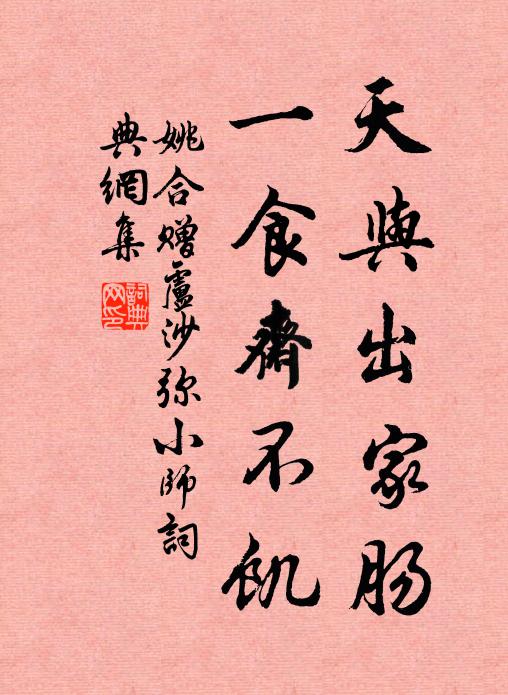 天與出家腸
一食齋不飢
姚合贈盧沙弥小師詞
典網集
詞典網印